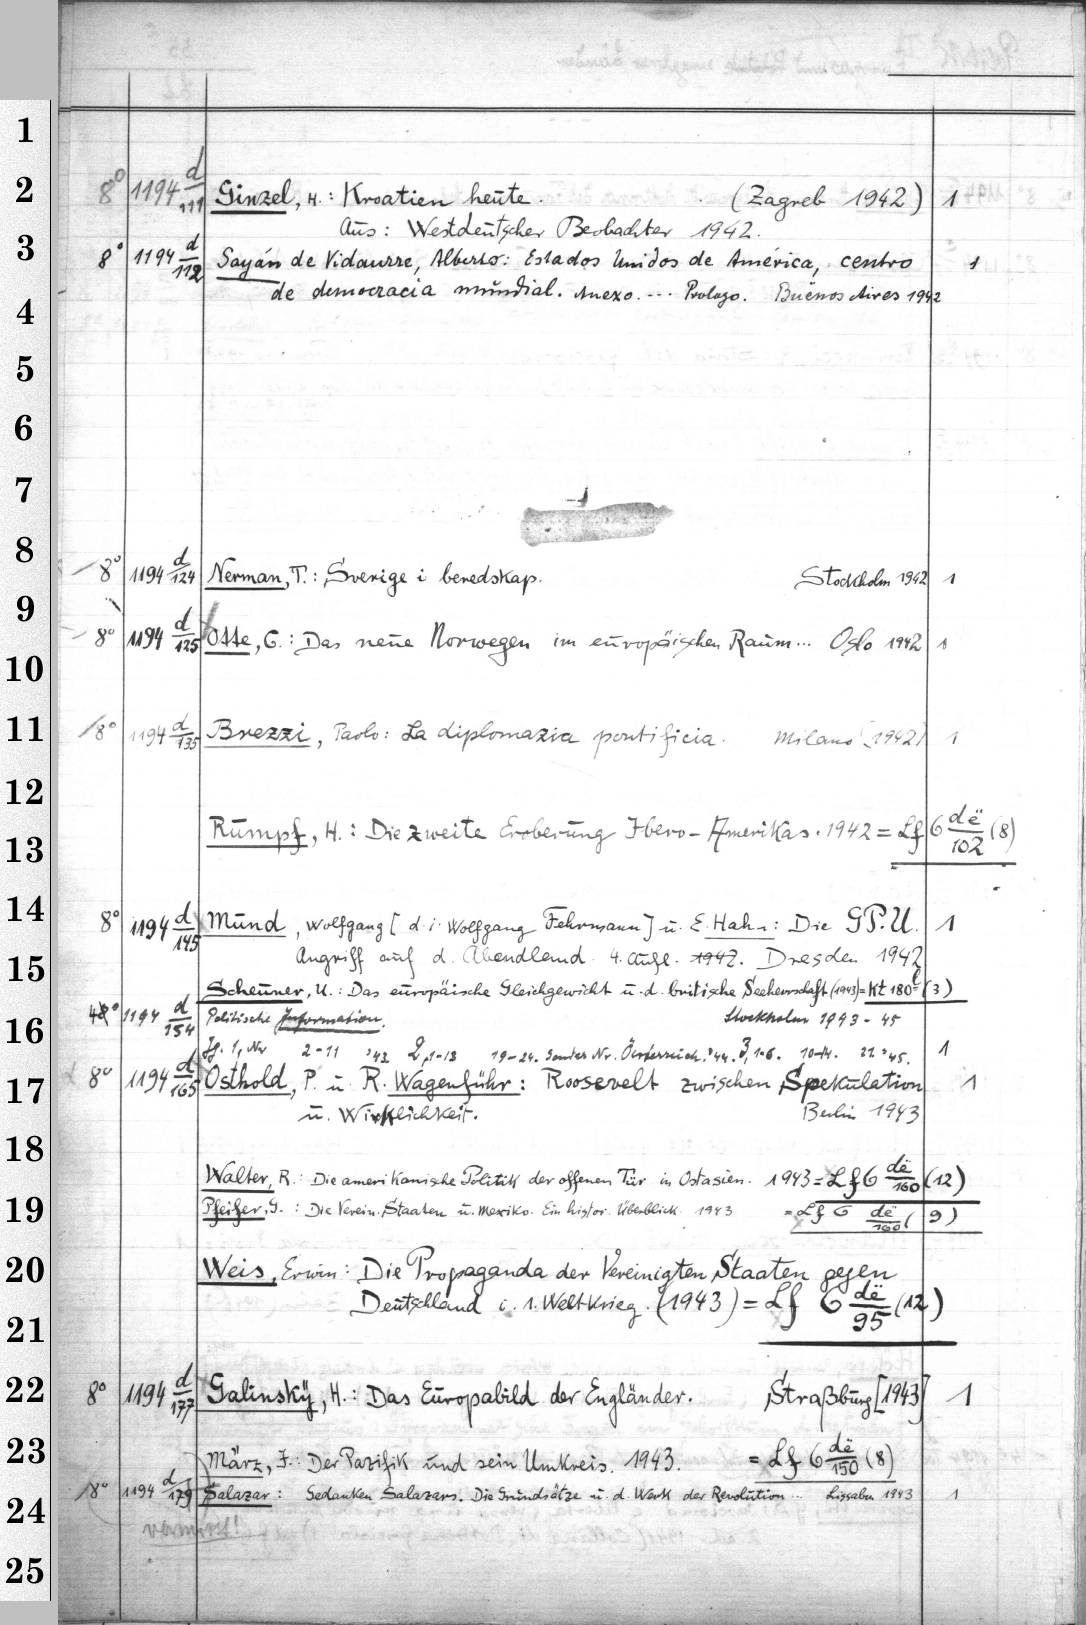 1
2
8° 1194 d/111 Ginzel, H.: Kroatien heute. (Zagreb 1942) 1
Aus: Westdeutscher Beobachter 1942.
3
8° 1194 d/112 Sayán de Vidaurre, Alberto: Estados Unidos de América, centro 1
de democracia mundial. Anexo. --- Prologo. Buenos Aires 1942
4
5
6
7
8
8° 1194 d/124 Nerman, T.: Sverige i beredskap. Stockholm 1942 1
9
8° 1194 d/125 Otte, G.: Das neue Norwegen im europäischen Raum... Oslo 1942 1
10
11
8° 1194 d/135 Brezzi, Paolo: La diplomazia pontificia. Milano [1942] 1
12
Rumpf, H.: Die zweite Eroberung Ibero-Amerikas. 1942 = Lf 6 dë/102 (8)
13
14
8° 1194 d/145 Mund, Wolfgang [d. i. Wolfgang Fehrmann] u. E. Hahn: Die GP.U. 1
Angriff auf d. Abendland. 4. Aufl. 1942. Dresden 1942
15
Scheuner, U.: Das europäische Gleichgewicht u. d. britische Seeherrschaft (1943) = Kt 180 (3)
16
4° 1194 d/154 Politische Information. Stockholm 1943-45
Jg. 1, Nr 2-11 '43. 2, 1-18 19-24. Sonder Nr. Österreich. '44. 3, 1-6. 10-14. 22. '45. 1
17
8° 1194 d/165 Osthold, P. u. R. Wagenführ: Roosevelt zwischen Spekulation 1
u. Wirklichkeit. Berlin 1943
18
Walter, R.: Die amerikanische Politik der offenen Tür in Ostasien. 1943 = Lf 6 dë/160 (12)
19
Pfeifer, G.: Die Verein. Staaten u. Mexiko. Ein histor. Überblick. 1943 = Lf 6 dë/160 (9)
20
Weis, Erwin: Die Propaganda der Vereinigten Staaten gegen
Deutschland i. 1. Weltkrieg. (1943) = Lf 6 dë/95 (12)
21
22
8° 1194 d/177 Galinsky, H.: Das Europabild der Engländer. Straßburg [1943] 1
23
März, J.: Der Pazifik und sein Umkreis. 1943. = Lf 6 dë/150 (8)
24
8° 1194 d/179 Salazar: Gedanken Salazars. Die Grundsätze u. d. Werk der Revolution... Lissabon 1943 1
25